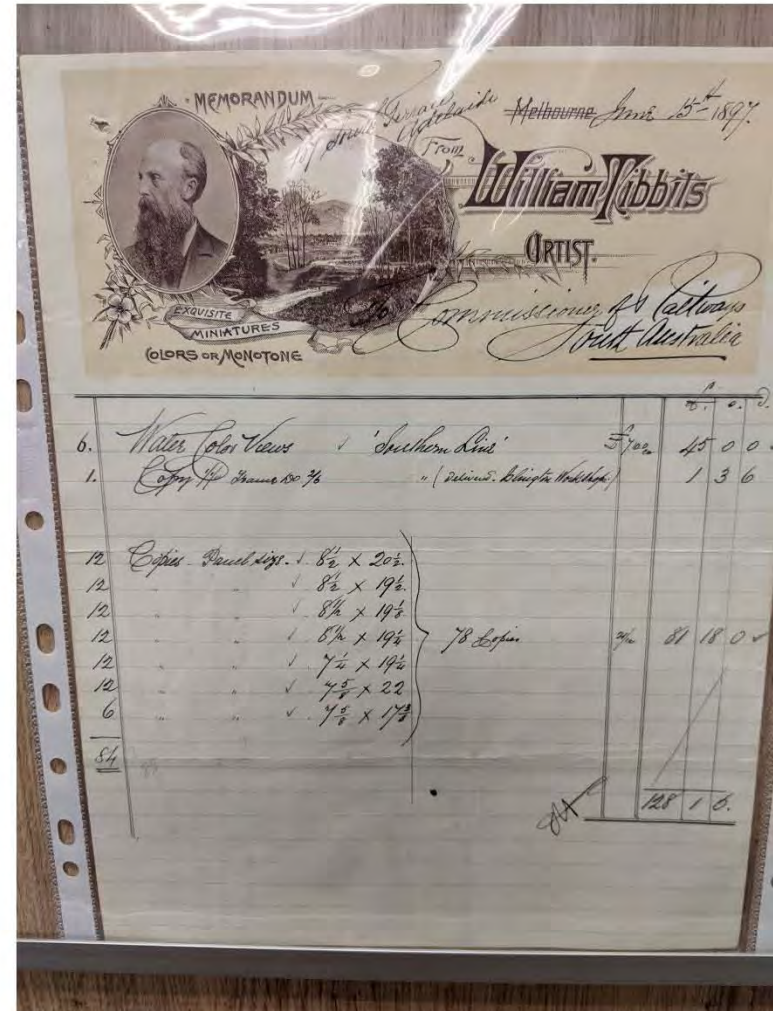 MEMORANDUM
Terrace
Adelaide
Melbourne June 15th 1897.
From
William Tibbits
ARTIST.
EXQUISITE
MINIATURES
COLORS OR MONOTONE
Commissioner of Railways
South Australia
£. s. D.
6. Water Color Views ✓ 'Southern Line' 45 0 0 ✓
1. Copy " (Delivered Islington Workshops) 1 3 6
12 Copies Panel size ✓ 8 1/2 x 20 1/2
12 " " ✓ 8 1/2 x 19 1/2
12 " " ✓ 8 1/2 x 19 1/8
12 " " ✓ 6 1/2 x 19 1/4 78 Copies 21/- 81 18 0 ✓
12 " " ✓ 7 1/4 x 19 1/4
12 " " ✓ 7 5/8 x 22
6 " " ✓ 7 5/8 x 17 3/8
84
128 1 6.